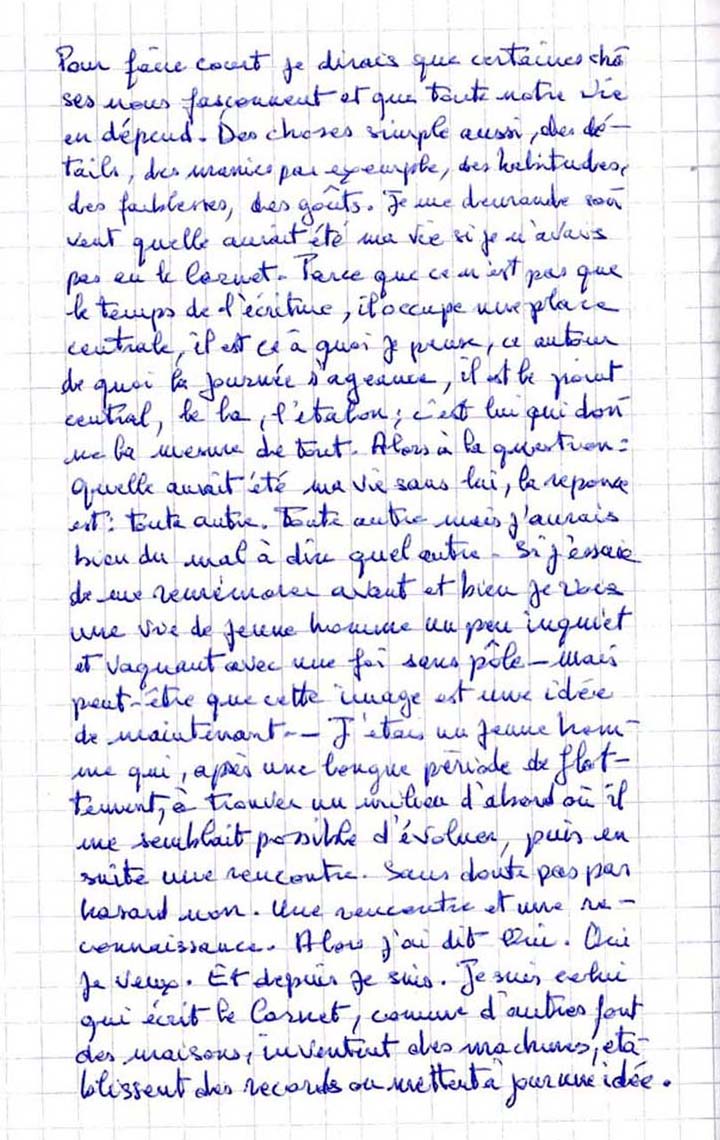 Pour faire court je dirais que certaines cho
ses nous façonnent et que toute notre vie
en dépend. Des choses simple aussi, des dé-
tails, des manies par exemple, des habitudes,
des faiblesses, des goûts. Je me demande sou
vent quelle aurait été ma vie si je n'avais
pas eu le Carnet. Parce que ce n'est pas que
le temps de l'écriture, il occupe une place
centrale, il est ce à quoi je pense, ce autour
de quoi la journée s'ageance, il est le point
central, le la, l'étalon; c'est lui qui don
ne la mesure de tout. Alors à la question:
quelle aurait été ma vie sans lui, la reponse
est: toute autre. Toute autre mais j'aurais
bien du mal à dire quel autre. Si j'essaie
de me remémorer avant et bien je vois
une vie de jeune homme un peu inquiet
et vaguant avec une foi sans pôle - Mais
peut-être que cette image est une idée
de maintenant - - J'étais un jeune hom-
me qui, après une longue période de flot-
tement, à trouver un milieu d'abord où il
me semblait possible d'évoluer, puis en
suite une rencontre. Sans doute pas par
hasard non. Une rencontre et une re-
connaissance. Alors j'ai dit Oui. Oui
je veux. Et depuis je suis. Je suis celui
qui écrit le Carnet, comme d'autres font
des maisons, inventent des machines, éta-
blissent des records ou mettent à jour une idée.